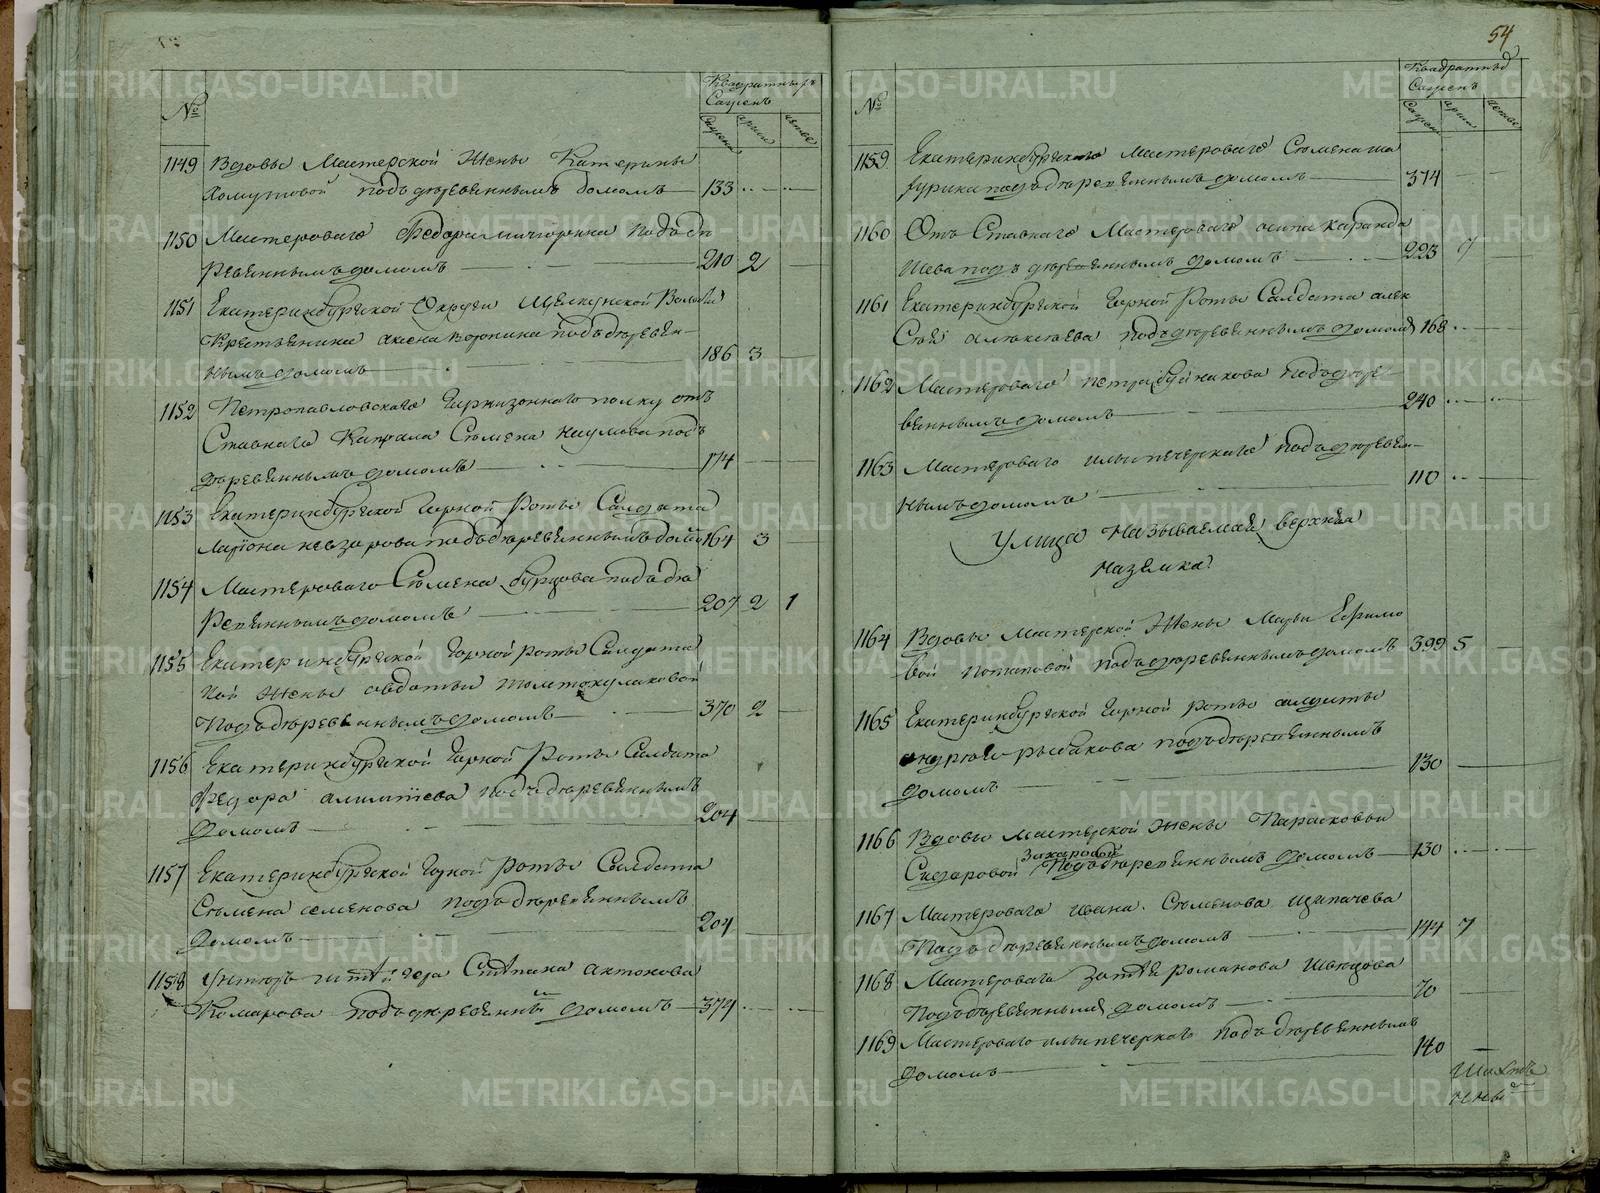 №
Квадратныхъ
Сажень
Сажени
арши
четве
1149 Вдовы Мастерской Жены Катерины
Хомутовой подъ деревяннымъ домомъ 133
1150 Мастероваго Федора Мичюрина подъ де
ревяннымъ домомъ 210 2
1151 Екатеринбургской Округи Щелкунской Волости
Крестьянина подъ деревян
нымъ домомъ 186 3
1152 Петропавловскаго Гарнизоннаго полку от
Ставнаго Капрала Семена Наумова подъ
деревяннымъ домомъ 174
1153 Екатеринбургской Горной Роты Салдата
Лариона Невзорова подъ деревяннымъ домомъ 164 3
1154 Мастероваго Семена Бурцова подъ де
ревяннымъ домомъ 207 2 1
1155 Екатеринбургской Горной роты Салдатс
кой Жены авдотьи толстокулаковой
Подъ деревяннымъ домомъ 370 2
1156 Екатеринбургской Горной Роты Салдата
Федора подъ деревяннымъ
домомъ 204
1157 Екатеринбургской Горной Роты Салдата
Семена семенова подъ деревяннымъ
домомъ 204
1158 Унтеръ Степана антонова
Комарова подъ деревянны домомъ 374
54
№
Квадратныхъ
Сажень
Сажени
арши
четве
1159 Екатеринбургскаго Мастероваго Семена ша
фурина подъ деревяннымъ домомъ 374
1160 Отъ Ставнаго Мастероваго осипа каранда
шева подъ деревяннымъ домомъ 223 7
1161 Екатеринбургской Горной Роты Салдата алек
Сея алексеева подъ деревяннымъ домомъ 168
1162 Мастероваго петра подъ дере
вяннымъ домомъ 240
1163 Мастероваго ильи печерскаго подъ деревян
нымъ домомъ 110
Улица Называемая верхняя
наземка
1164 Вдовы Мастерской Жены Марьи Ефимо
вой потаповой подъ деревяннымъ домомъ 399 5
1165 Екатеринбургской Горной роты салдата
андрея рыбакова подъ деревяннымъ
домомъ 130
1166 Вдовы мастерской Жены Парасковьи
Захаровой
Сидаровой подъ деревяннымъ домомъ 130
1167 Мастероваго ивана Семенова щипачева
Подъ деревяннымъ домомъ 144 7
1168 Мастероваго романова Швецова
Подъ деревяннымъ домомъ 70
1169 Мастероваго ильи печеркаго подъ деревяннымъ
домомъ 140
METRIKI.GASO-URAL.RU